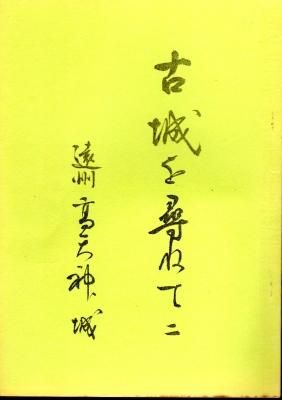 古城を尋ねて二
遠州高天神城